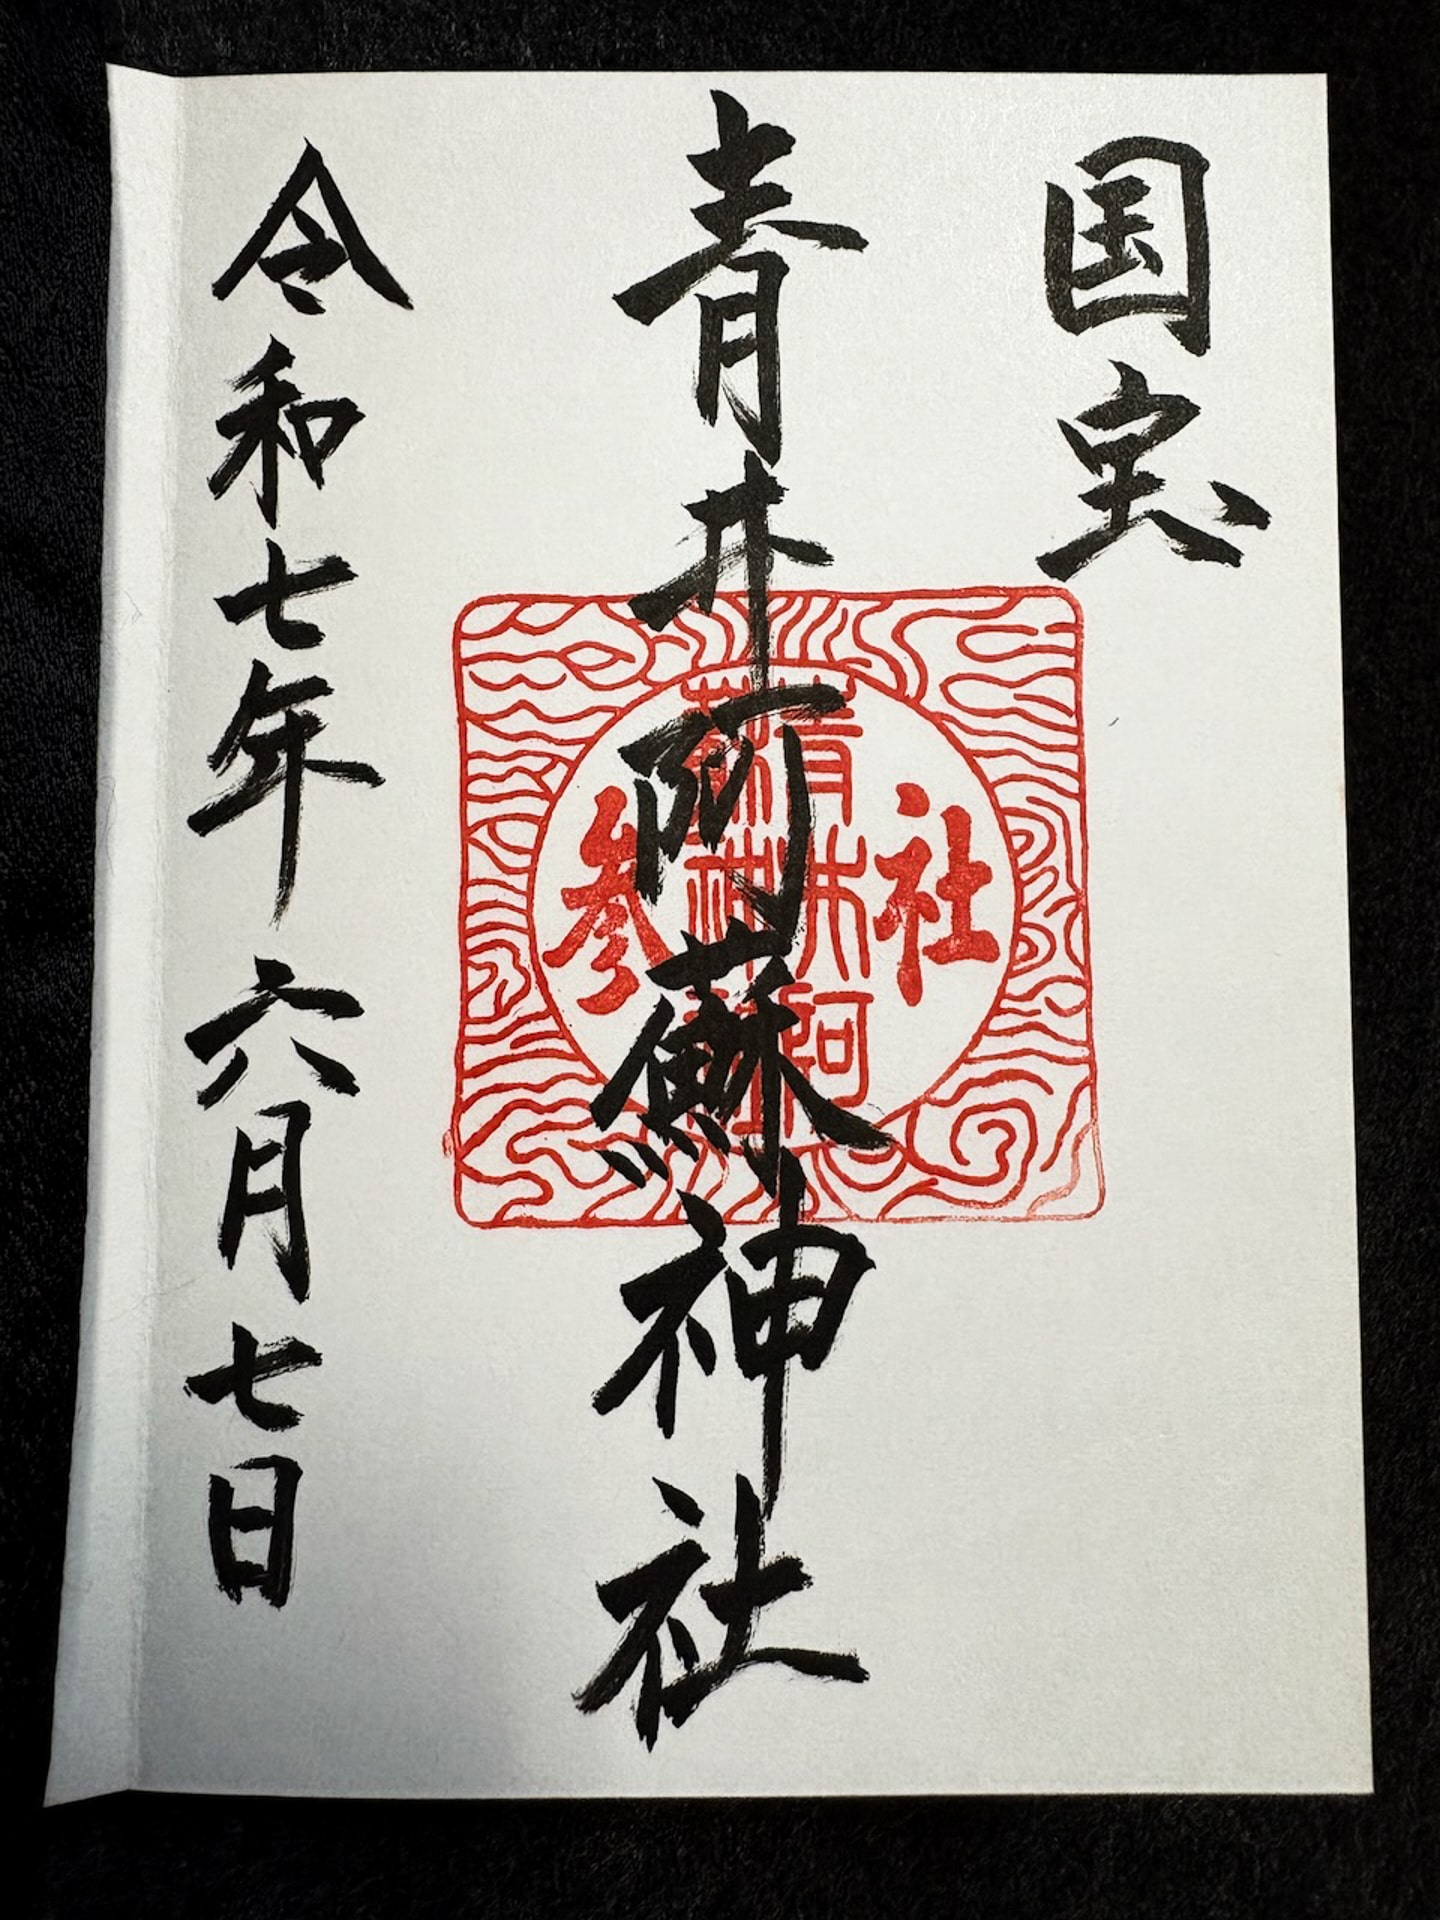 国宝
青井阿蘇神社
社参
青井阿
蘇神社
令和七年六月七日